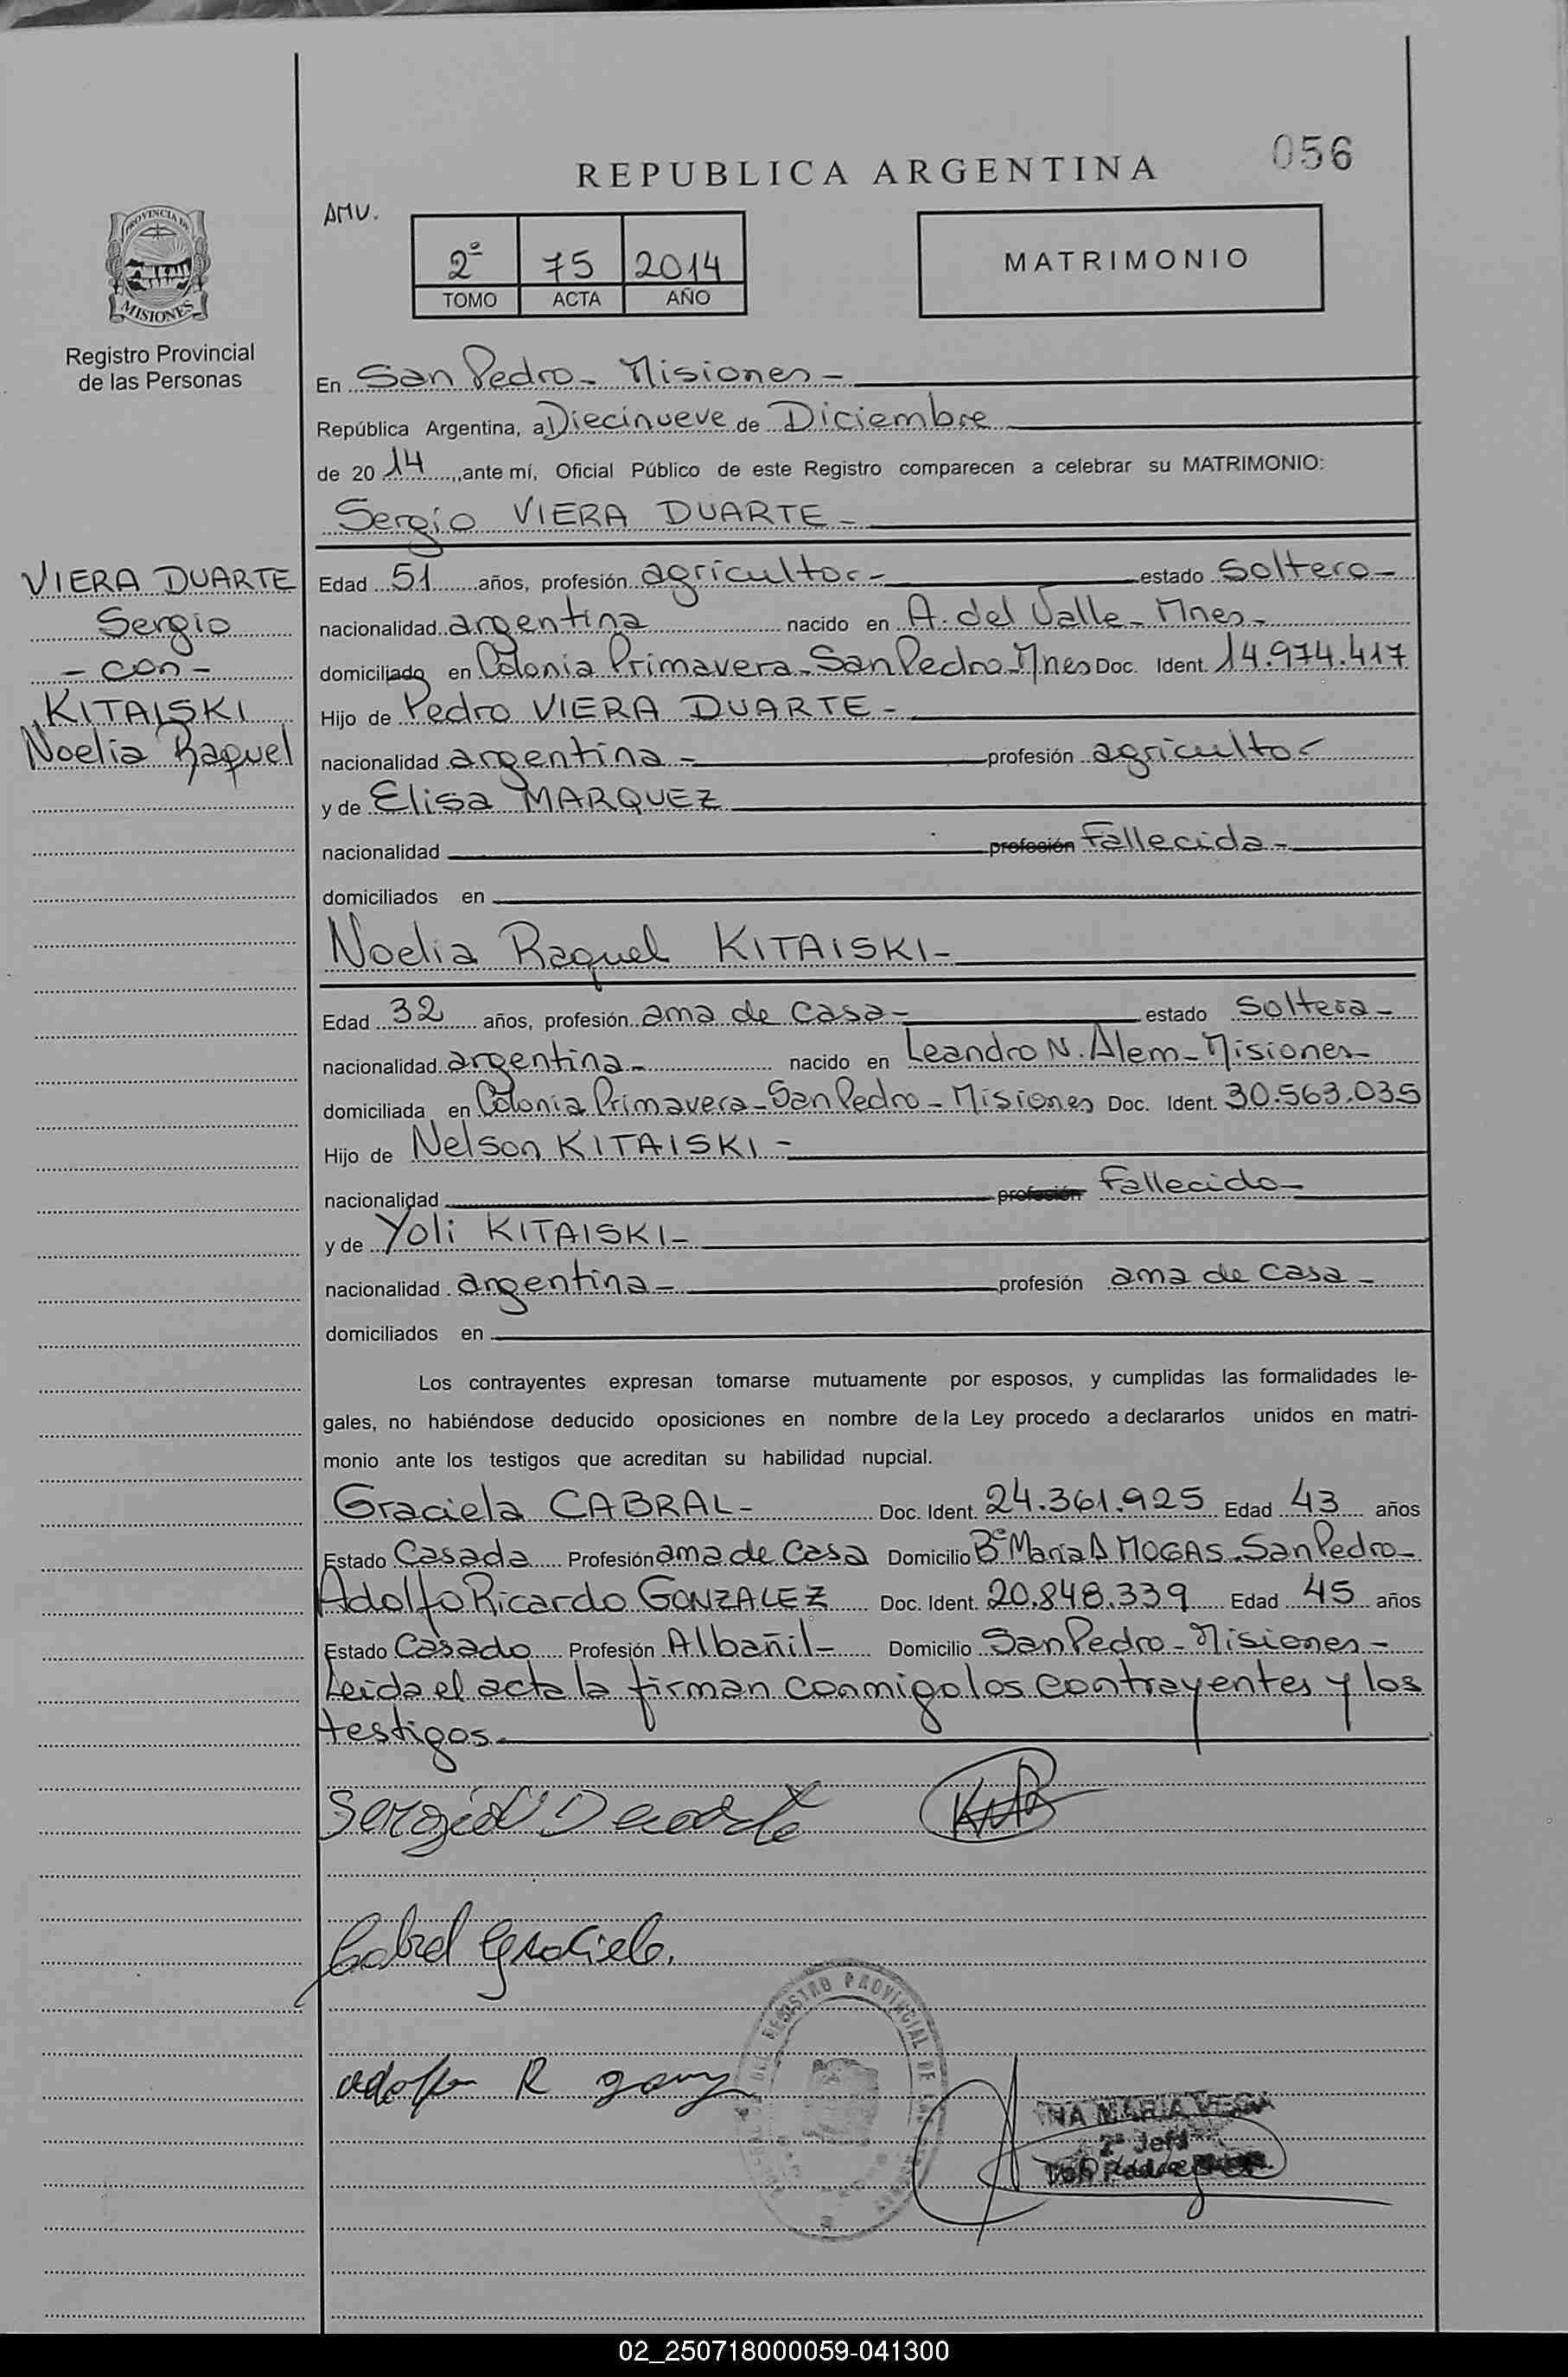 056
REPUBLICA ARGENTINA
AMV.
2º 75 2014
TOMO ACTA AÑO
MATRIMONIO
PROVINCIA DE
MISIONES
Registro Provincial
de las Personas
En San Pedro - Misiones -
República Argentina, a Diecinueve de Diciembre
de 20 14 ,,ante mí, Oficial Público de este Registro comparecen a celebrar su MATRIMONIO:
Sergio VIERA DUARTE -
VIERA DUARTE
Sergio
- con -
KITAISKI
Noelia Raquel
Edad 51 años, profesión agricultor - estado Soltero -
nacionalidad argentina nacido en A. del Valle - Mnes -
domiciliado en Colonia Primavera - San Pedro - Mnes Doc. Ident. 14.974.417
Hijo de Pedro VIERA DUARTE -
nacionalidad argentina - profesión agricultor
y de Elisa MARQUEZ
nacionalidad profesión Fallecida -
domiciliados en
Noelia Raquel KITAISKI -
Edad 32 años, profesión ama de casa - estado Soltera -
nacionalidad argentina - nacido en Leandro N. Alem - Misiones -
domiciliada en Colonia Primavera - San Pedro - Misiones Doc. Ident. 30.563.035
Hijo de Nelson KITAISKI -
nacionalidad profesión Fallecido -
y de Yoli KITAISKI -
nacionalidad argentina - profesión ama de casa -
domiciliados en
Los contrayentes expresan tomarse mutuamente por esposos, y cumplidas las formalidades le-
gales, no habiéndose deducido oposiciones en nombre de la Ley procedo a declararlos unidos en matri-
monio ante los testigos que acreditan su habilidad nupcial.
Graciela CABRAL - Doc. Ident. 24.361.925 Edad 43 años
Estado Casada Profesión ama de casa Domicilio Bº Maria A MOGAS - San Pedro -
Adolfo Ricardo GONZALEZ Doc. Ident. 20.848.339 Edad 45 años
Estado Casado Profesión Albañil - Domicilio San Pedro - Misiones -
Leida el acta la firman conmigo los contrayentes y los
testigos.
Sergio V Duarte
Cabral Graciela.
Adolfo R
REGISTRO PROVINCIAL DE
ANA MARIA VEGA
2ª Jefa
02_250718000059-041300